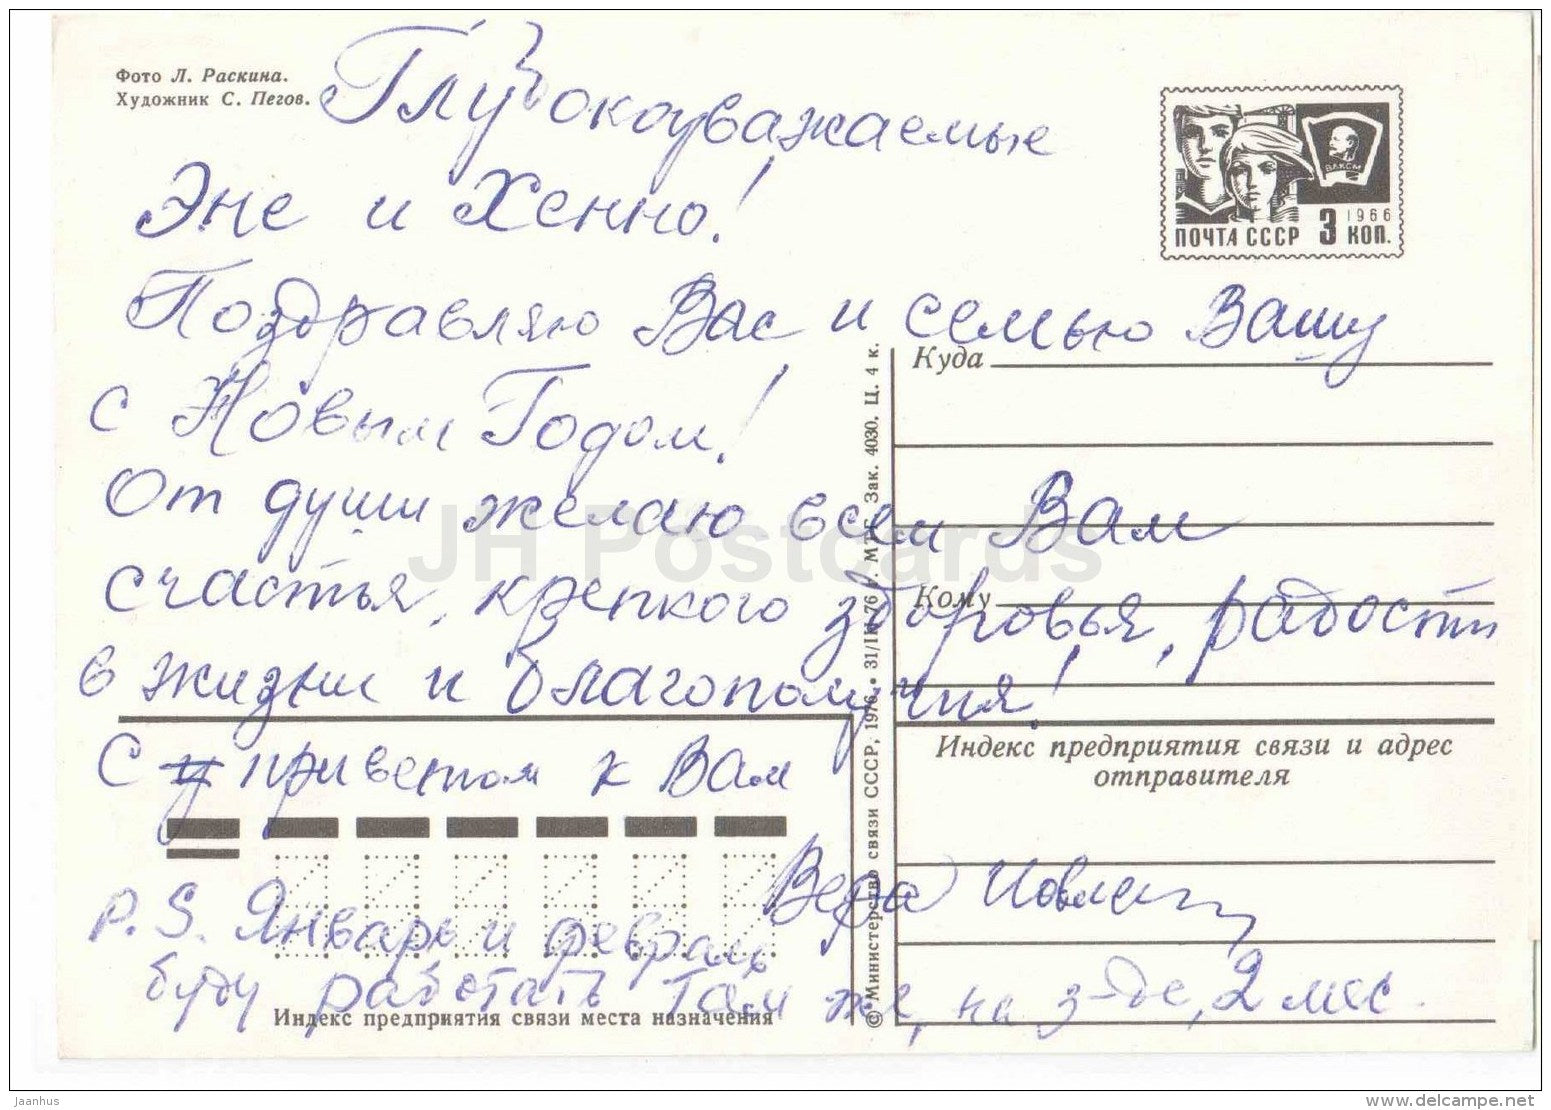 Фото Л. Раскина.
Художник С. Пегов.
Глубокоуважаемые
Эне и Хенно!
Поздравляю Вас и семью Вашу
с Новым Годом!
От души желаю всем Вам
счастья, крепкого здоровья, радости
в жизни и благополучия!
С приветом к Вам
Вера
P.S. Январь и февраль
буду работать там же, на з-де, 2 мес.
ВЛКСМ
1966
ПОЧТА СССР 3 КОП.
Куда
Кому
Индекс предприятия связи и адрес
отправителя
Индекс предприятия связи места назначения
© Министерство связи СССР, 1976 • 31/III-76 г. МТГ. Зак. 4030. Ц. 4 к.
JH Postcards
Jaanhus
www.delcampe.net